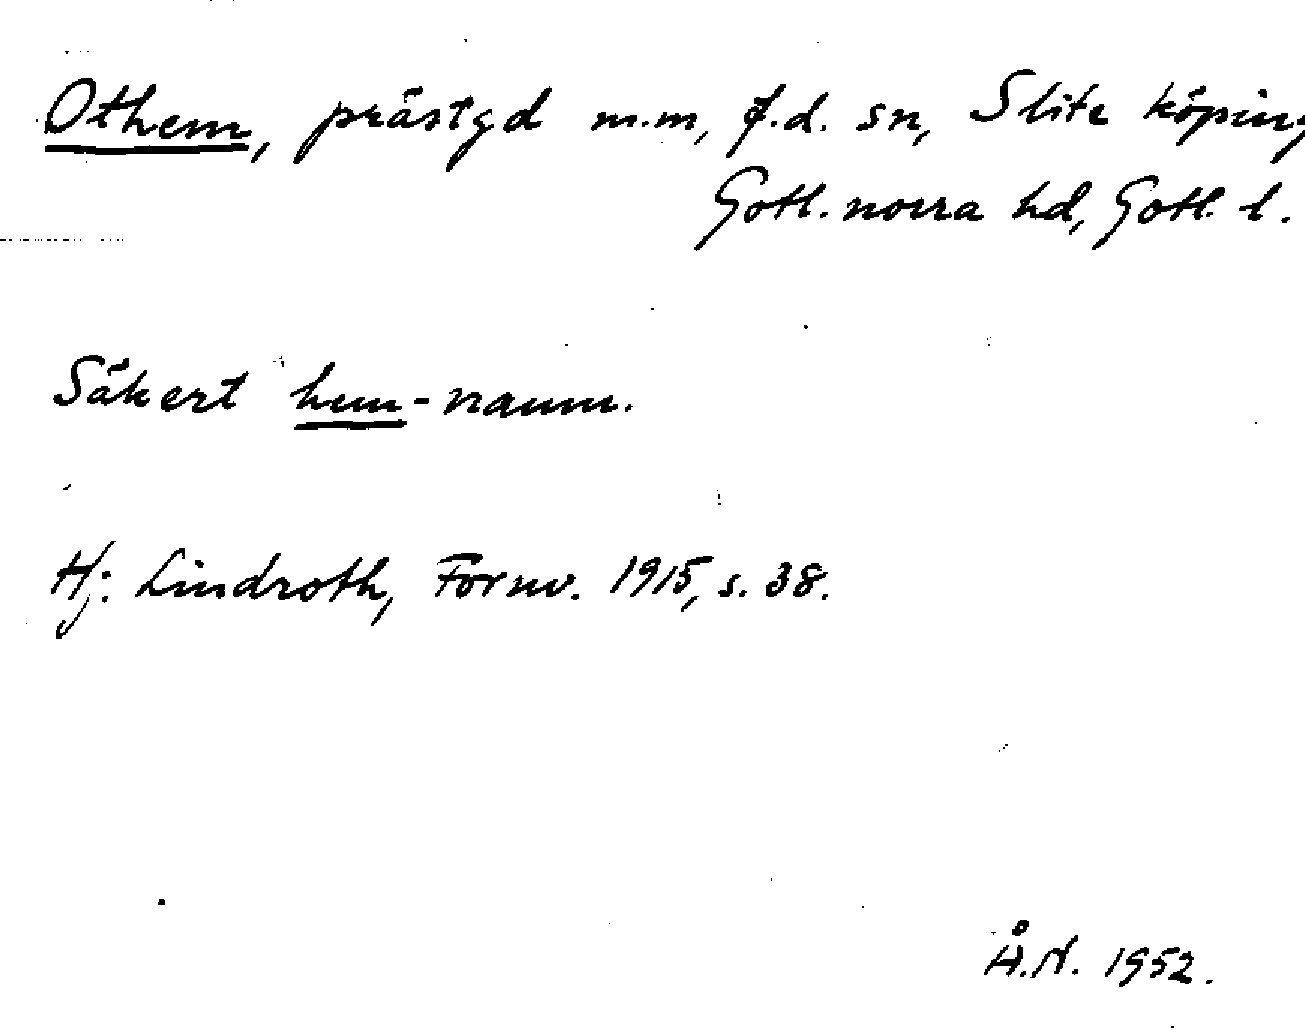 Othem, prästgd m.m, f.d. sn, Slite köping
Gotl. norra hd, Gotl. l.
Säkert hem-namn.
Hj: Lindroth, Fornv. 1915, s. 38.
Å.N. 1952.